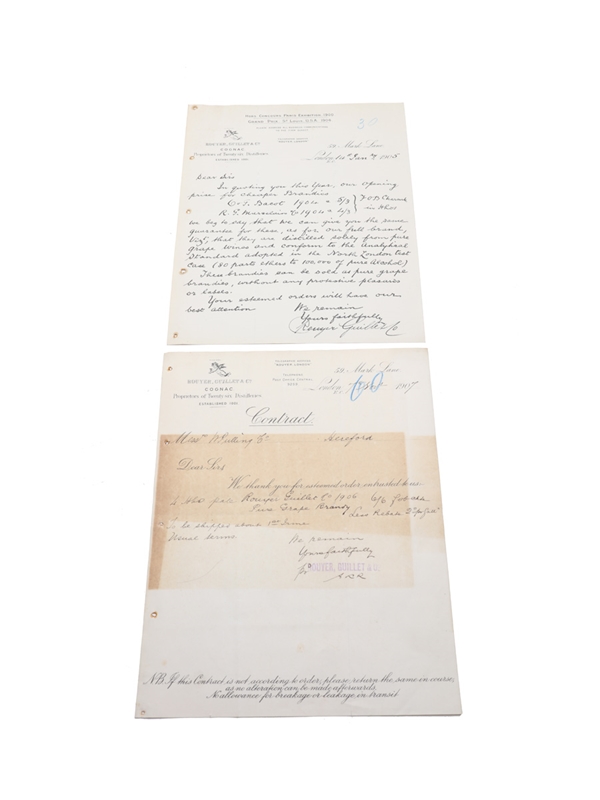 HIGH AWARD PARIS EXHIBITION 1900
GRAND PRIX ST LOUIS U.S.A 1904
ROUYER, GUILLET & Co
COGNAC
Proprietors of Twenty-six Distilleries
ESTABLISHED 1801
59, Mark Lane
London, 14th Jany 1905
Dear Sirs
In quoting you this Year, our Opening
price for Cheaper Brandies
1904 = 5/3
R. G. 1904 = 4/3
we beg to say that we can give you the same
guarantee for these, as for our full brand,
Viz, that they are distilled solely from pure
grape wines and conform to the Analytical
Standard adopted in the North London test
case (80 parts ethers to 100,000 of pure Alcohol.)
These brandies can be sold as pure grape
brandies, without any protective
or labels.
Your esteemed orders will have our
best attention
We remain
Yours faithfully
Rouyer Guillet & Co
ROUYER, GUILLET & Co
COGNAC
Proprietors of Twenty-six Distilleries
ESTABLISHED 1801
59, Mark Lane
London, 1907
Contract
Hereford
Dear Sirs
We thank you for esteemed order entrusted to us
Rouyer Guillet Co 1906 6/6
Pure Grape Brandy Less Rebate
To be shipped about 1st June
Usual terms
We remain
Yours faithfully
ROUYER, GUILLET & Co
N.B. If this Contract is not according to order, please return the same in course,
as no alteration can be made afterwards.
No allowance for breakage or leakage in transit